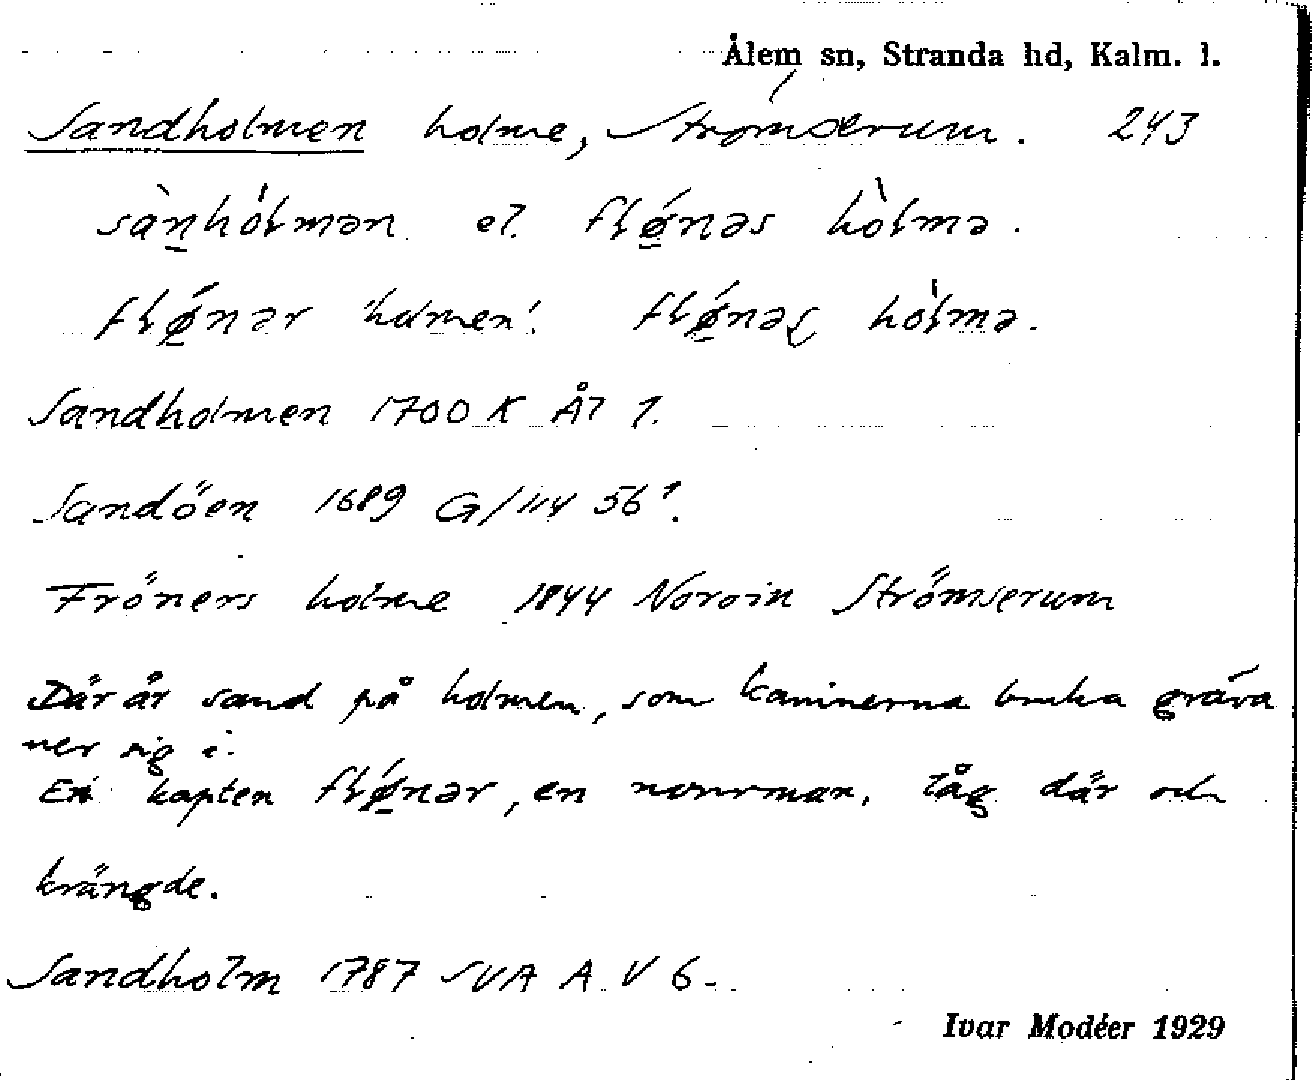 Ålem sn, Stranda hd, Kalm. l.
Sandholmen holme, Strömserum. 243
sàn̠hólmən el. flǿ̠nəs hòlmə.
flǿ̠nər "holmen". flǿ̠nəʂ hòlmə.
Sandholmen 1700 K Ål 1.
Sandöen 1689 G/114 56¹.
Fröners holme 1844 Nordin Strömserum
Där är sand på holmen, som kaninerna bruka gräva
ner sig i.
En kapten flǿ̠nər, en norrman, låg där och
krängde.
Sandholm 1787 SVA A V 6.
Ivar Modéer 1929